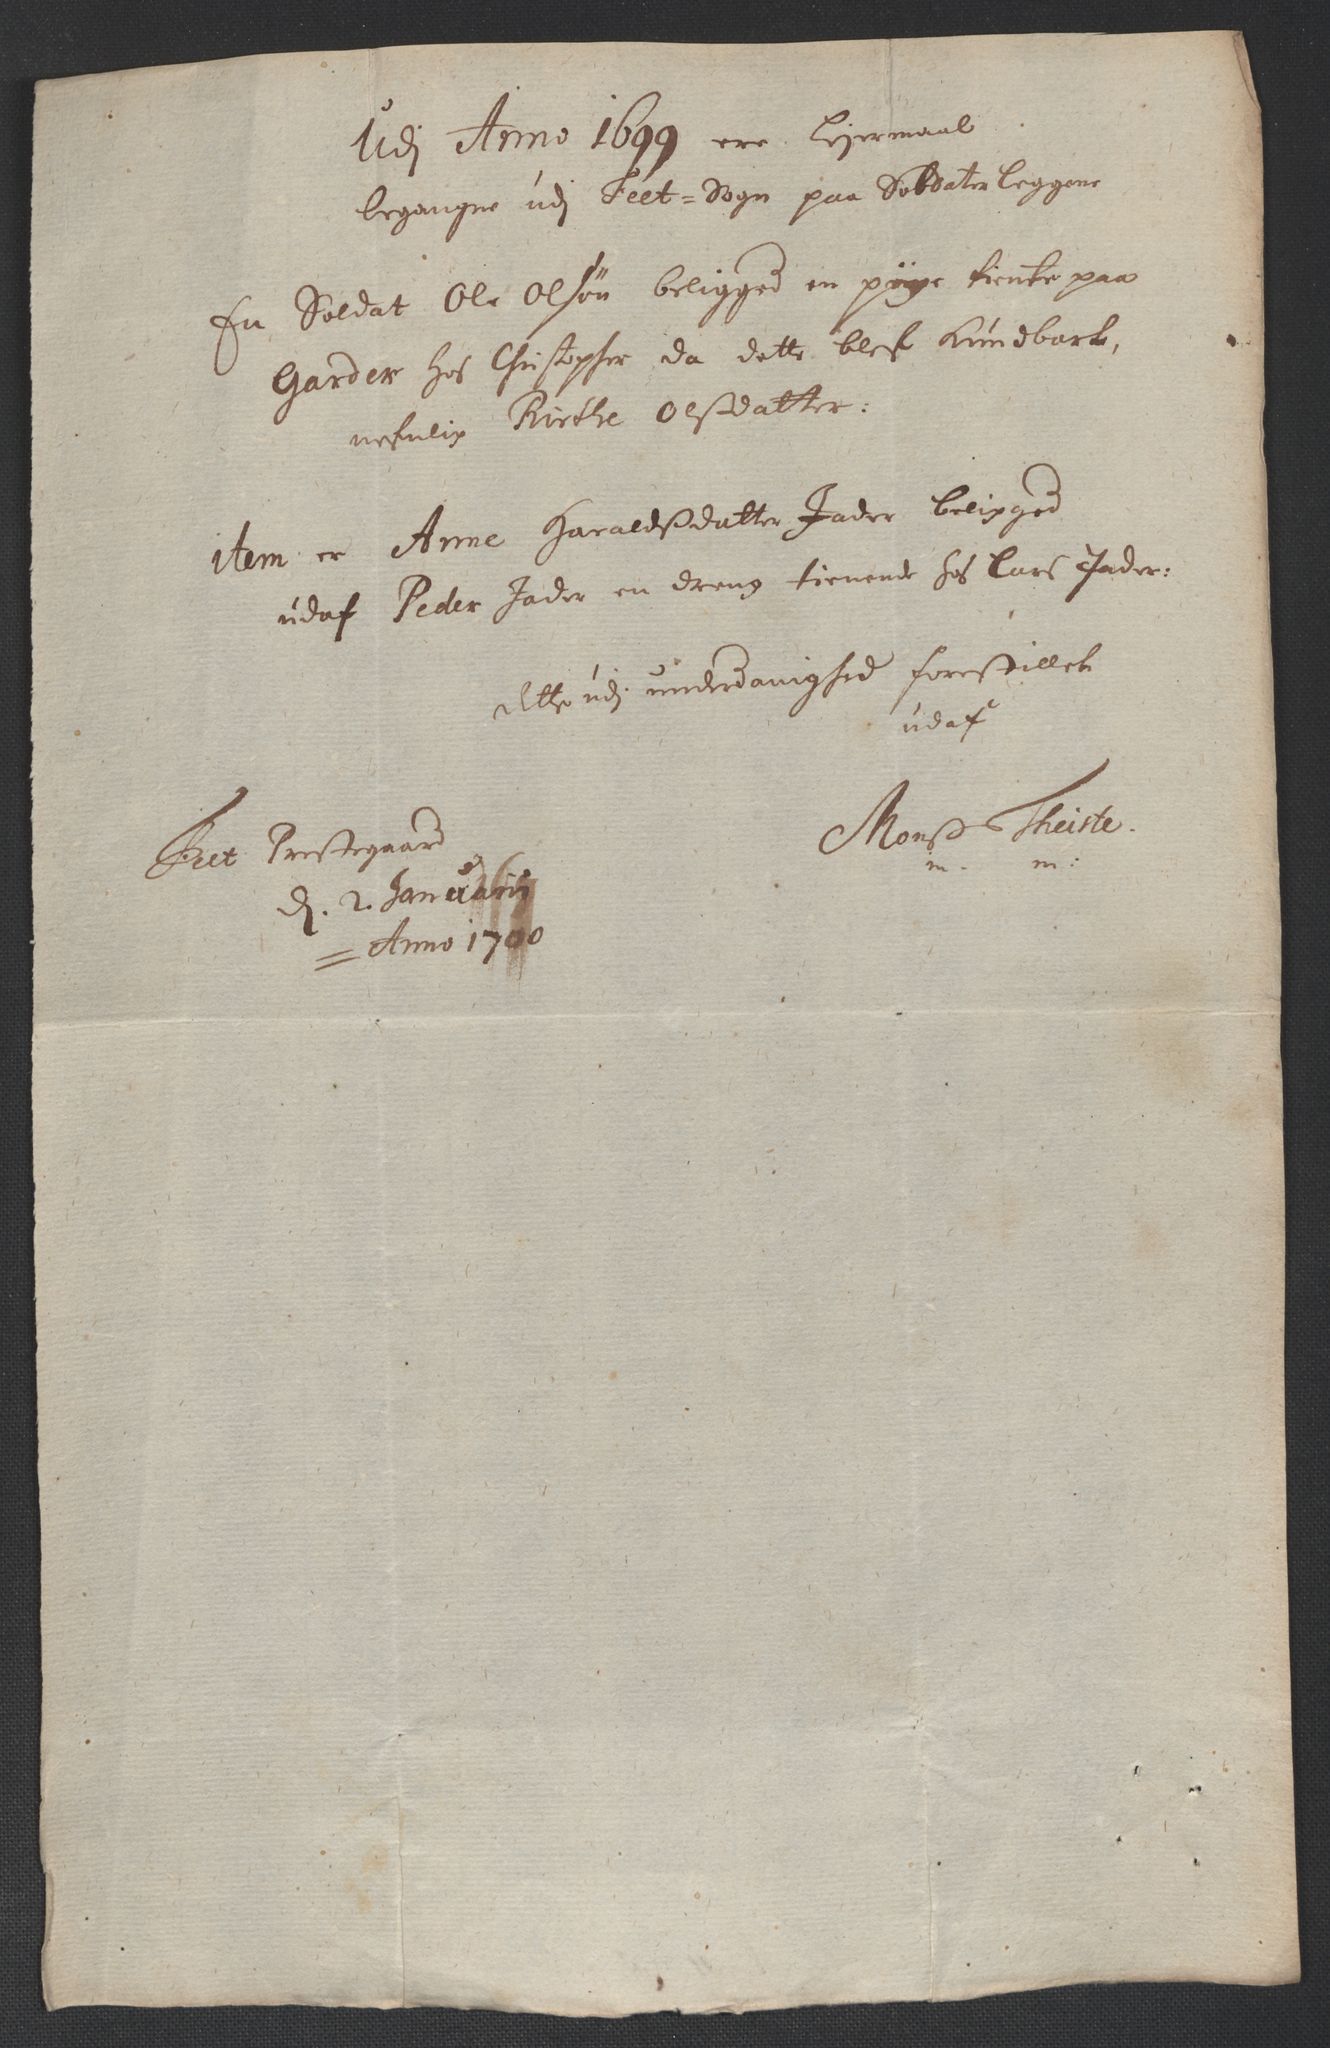 Udj Anno 1699 ere Lejermaal
begangne udj Feet=Sogn paa Soldater Leggene
En Soldat Ole Olsøn beligged en pige tiente paa
Garder hos Christopher da dette blef kundbart,
nefnlig Kirthe Olsdatter:
item er Anne Haraldsdatter Jader beligged
udaf Peder Jader en dreng tienende hos Lars Jader:
dette udj underdanighed forestillet
udaf
Monss Theiste.
m. m:
Feet Prestegaard
d. 2. Januarij
= Anno 1700